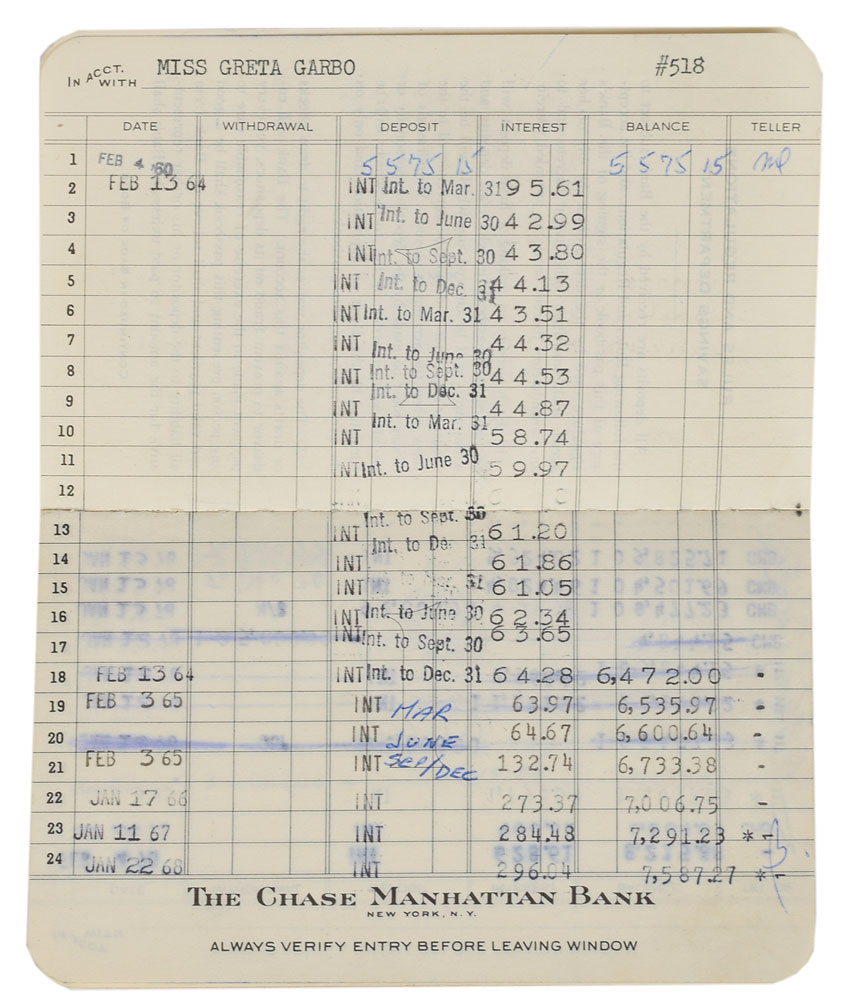 IN ACCT. WITH MISS GRETA GARBO #518
DATE WITHDRAWAL DEPOSIT INTEREST BALANCE TELLER
1 FEB 4 '60 5 575 15 5 575 15
2 FEB 13 64 INT Int. to Mar. 31 95.61
3 INT Int. to June 30 42.99
4 INT Int. to Sept. 30 43.80
5 INT Int. to Dec. 31 44.13
6 INT Int. to Mar. 31 43.51
7 INT Int. to June 30 44.32
8 INT Int. to Sept. 30 44.53
9 INT Int. to Dec. 31 44.87
10 INT Int. to Mar. 31 58.74
11 INT Int. to June 30 59.97
12
13 INT Int. to Sept. 30 61.20
14 INT Int. to De 31 61.86
15 INT 31 61.05
16 INT Int. to June 30 62.34
17 INT Int. to Sept. 30 63.65
18 FEB 13 64 INT Int. to Dec. 31 64.28 6,472.00 -
19 FEB 3 65 INT MAR 63.97 6,535.97 -
20 INT JUNE 64.67 6,600.64 -
21 FEB 3 65 INT SEP/DEC 132.74 6,733.38 -
22 JAN 17 66 INT 273.37 7,006.75 -
23 JAN 11 67 INT 284.48 7,291.23 * -
24 JAN 22 68 INT 296.04 7,587.27 * -
THE CHASE MANHATTAN BANK
NEW YORK, N.Y.
ALWAYS VERIFY ENTRY BEFORE LEAVING WINDOW